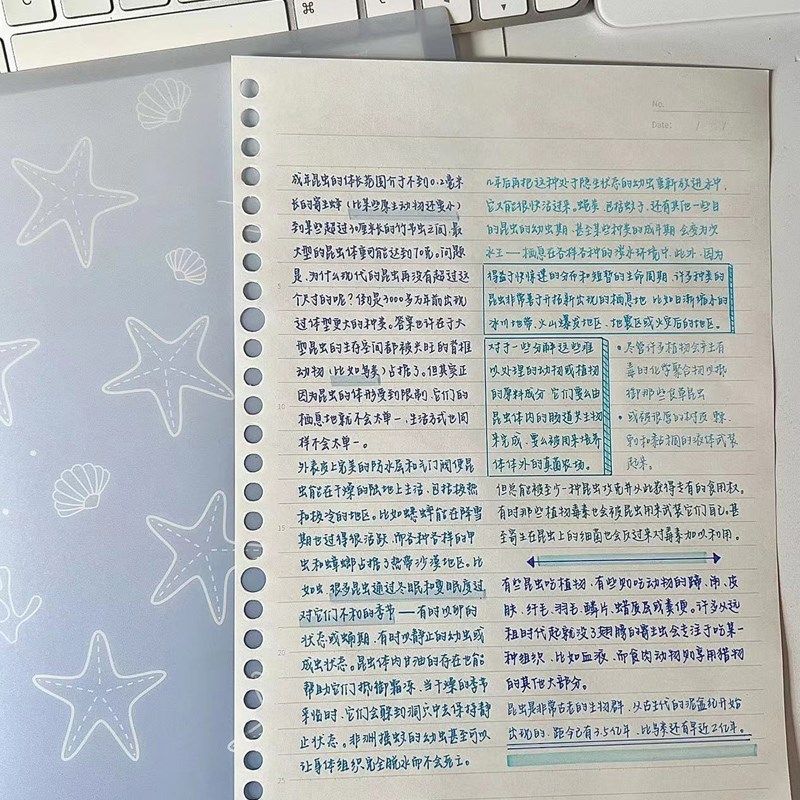 No.
Date: / /
成年昆虫的体长范围介于不到0.2毫米
长的寄生蜂（比某些原生动物还要小）
到某些超过30厘米长的竹节虫之间，最
大型的昆虫体重可能达到70克。问题
是，为什么现代的昆虫再没有超过这
个尺寸的呢？倒是3000多万年前出现
过体型更大的种类。答案也许在于大
型昆虫的生存空间都被失旺的脊椎
动物（比如鸟类）占据了。但其实正
因为昆虫的体形受到限制，它们的
栖息地就不会太单一，生活方式也同
样不会太单一。
外表皮上完美的防水层和气门阀使昆
虫能在干燥的陆地上生活，包括极热
和极冷的地区。比如蟋蟀能在降雪
期也过得很活跃，而各种各样的甲
虫和蟑螂占据了热带沙漠地区。比
如虫，很多昆虫通过冬眠和夏眠度过
对它们不利的季节——有时以卵的
状态或蛹期，有时以静止的幼虫或
成虫状态。昆虫体内甘油的存在也能
帮助它们抵御霜冻，当干燥的季节
来临时，它们会躲到洞穴中去保持静
止状态。非洲摇蚊的幼虫甚至可以
让身体组织完全脱水而不会死亡。
几年后再把这种处于隐生状态的幼虫重新放进水中，
它又能很快活过来。蝇类，包括蚊子，还有其他一些目
的昆虫的幼虫期，甚至某些种类的成年期会变为次
水生——栖息在各样各种的淡水环境中。此外，因为
得益于快慢速的分布和短暂的生命周期，许多种类的
昆虫非常善于开拓新出现的栖息地，比如日渐缩小的
冰川地带、火山爆发地区、地震区或火灾后的地区。
对于一些分解这些难
以处理的动物或植物
的原料成分，它们要么由
昆虫体内的肠道共生物
来完成，要么被用来培养
体体外的真菌农场。
• 尽管许多植物会产生有
毒的化学聚合物以抵
御那些食草昆虫
• 或能很厚的树皮、棘
刺和黏稠的液体武装
起来。
但总能被至少一种昆虫攻克并从此获得专有的食用权。
有时那些植物毒素也会被昆虫用来武装它们自己，甚
至寄生在昆虫上的细菌也会反过来对毒素加以利用。
有些昆虫吃植物，有些则吃动物的蹄、角、皮
肤、纤毛、羽毛、鳞片、蜡质瓦或粪便。许多从远
祖时代起就没了翅膀的寄生虫会专注于吃某一
种组织，比如血液，而食肉动物则享用猎物
的其他大部分。
昆虫是非常古老的生物群，从古生代的泥盆纪开始
出现的，距今已有3.5亿年，比鸟类还有早近2亿年。
5
10
15
20
25